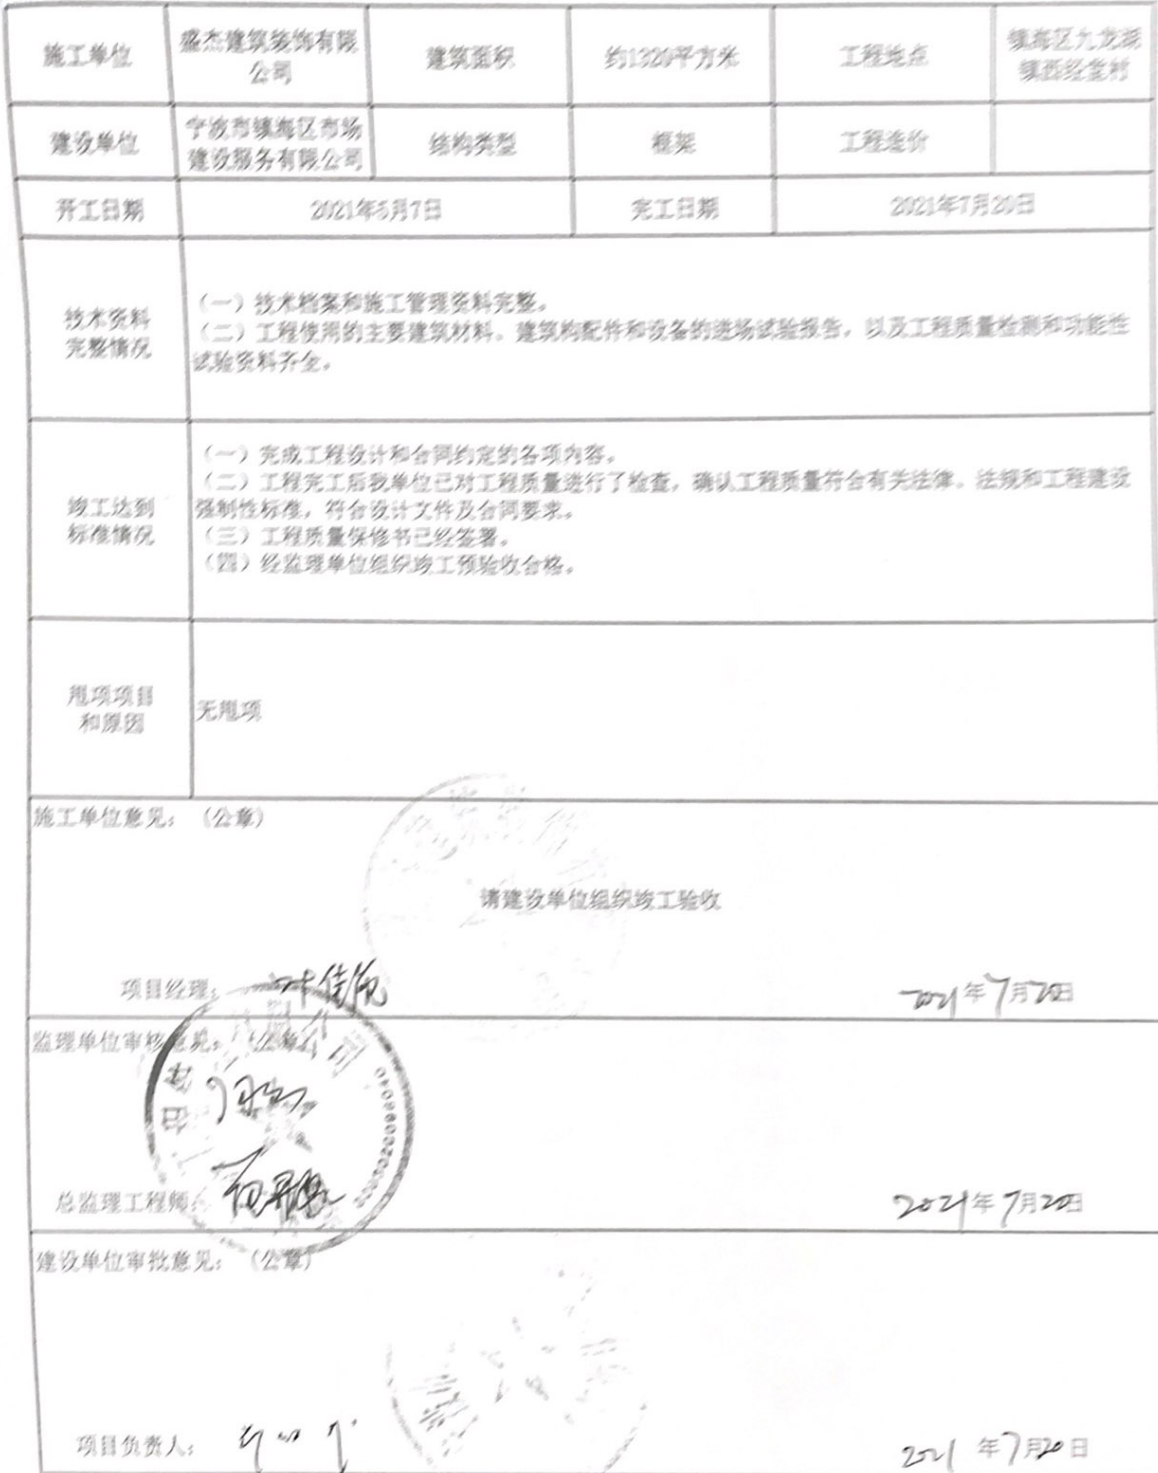 施工单位
盛杰建筑装饰有限
公司
建筑面积
约1320平方米
工程地点
镇海区九龙湖
镇西经堂村
建设单位
宁波市镇海区市场
建设服务有限公司
结构类型
框架
工程造价
开工日期
2021年5月7日
完工日期
2021年7月20日
技术资料
完整情况
（一）技术档案和施工管理资料完整。
（二）工程使用的主要建筑材料、建筑构配件和设备的进场试验报告，以及工程质量检测和功能性
试验资料齐全。
竣工达到
标准情况
（一）完成工程设计和合同约定的各项内容。
（二）工程完工后我单位已对工程质量进行了检查，确认工程质量符合有关法律、法规和工程建设
强制性标准，符合设计文件及合同要求。
（三）工程质量保修书已经签署。
（四）经监理单位组织竣工预验收合格。
甩项项目
和原因
无甩项
施工单位意见：（公章）
请建设单位组织竣工验收
项目经理：
2021年7月20日
监理单位审核意见：（公章）
总监理工程师：
2021年7月20日
建设单位审批意见：（公章）
项目负责人：
2021年7月20日